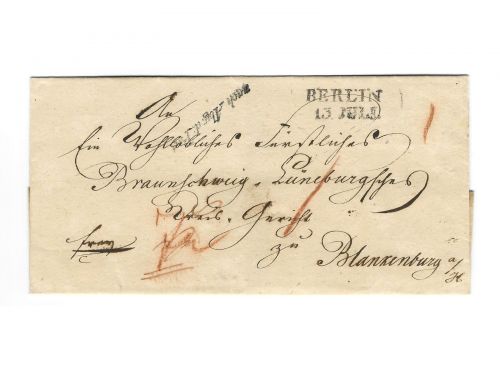 BERLIN
13 JULI
nach Abgang
An
Ein Wohllöbliches Fürstliches
Braunschweig-Lüneburgsches
Kreis-Gericht
zu
Blankenburg a/H
franco